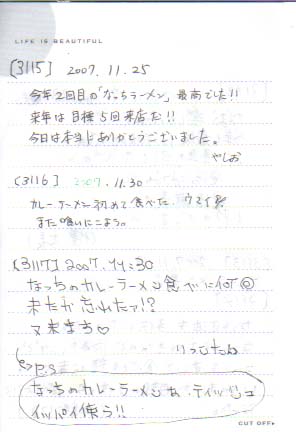 LIFE IS BEAUTIFUL
[3115] 2007.11.25
今年2回目の「なっちラーメン」最高でした!!
来年は目標5回来店だ!!
今日は本当にありがとうございました。
やしお
[3116] 2007.11.30
カレーラーメン初めて食べた。ウマイ
また喰いにこよう。
[3117] 2007.11.30
なっちのカレーラーメン食べに
来たか忘れたァ!?
又来ます♡
P.S
なっちのカレーラーメンわ、ティッシュ
イッパイ使う!!
CUT OFF▸